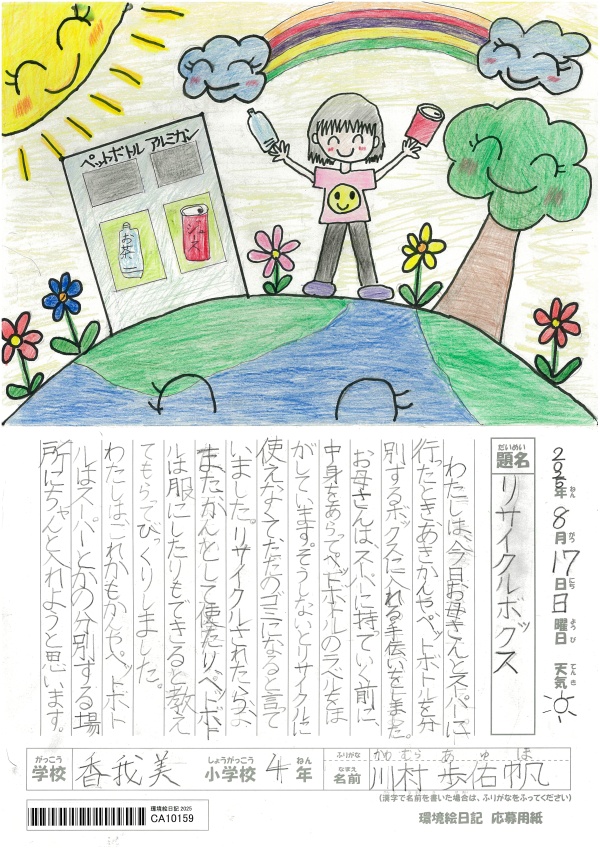 ペットボトル アルミカン
お茶
ジュース
2025年 8月 17日 日曜日 天気
ねん がつ にち ようび てんき
だいめい
題名 リサイクルボックス
わたしは、今日お母さんとスーパーに
行ったときあきかんやペットボトルを分
別するボックスに入れる手伝いをしました。
お母さんはスーパーに持っていく前に、
中身をあらってペットボトルのラベルをは
がしています。そうしないとリサイクルに
使えなくてただのゴミになると言って
いました。リサイクルされたら、
またかんとして使たりペットボト
ルは服にしたりもできると教え
てもらってびっくりしました。
わたしはこれからもかんやペットボト
ルはスーパーとかの分別する場
所にちゃんと入れようと思います。
がっこう しょうがっこう ねん ふりがな かわむら あゆほ
学校 香我美 小学校 4年 なまえ 名前 川村 歩佑帆
(漢字で名前を書いた場合は、ふりがなをふってください)
環境絵日記 2025
CA10159
環境絵日記 応募用紙